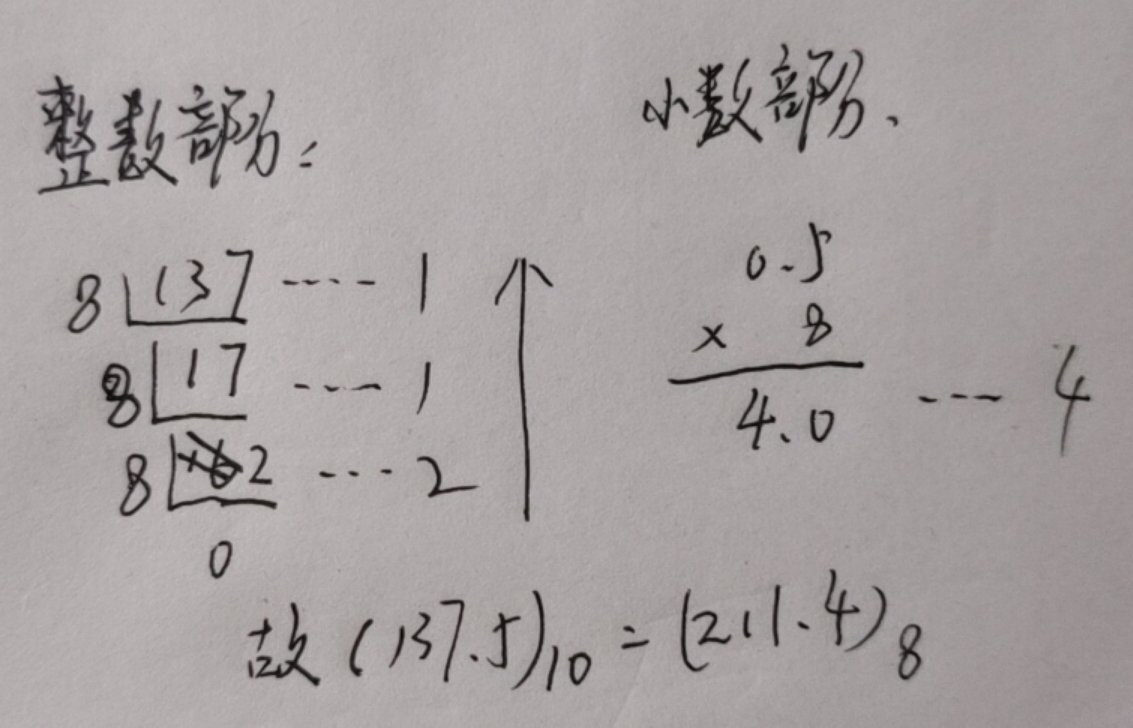 整数部分:
8 137 ---- 1
8 17 ---- 1
8 2 --- 2
0
小数部分、
0.5
× 8
4.0 --- 4
故(137.5)10=(211.4)8